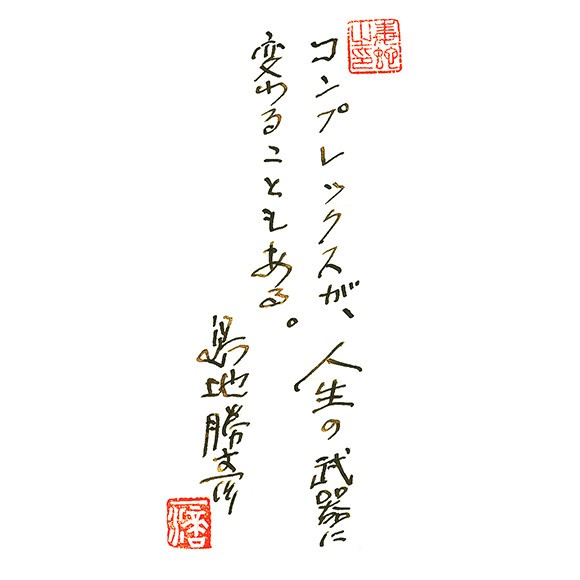 コンプレックスが、人生の武器に
変わることもある。
島地勝彦